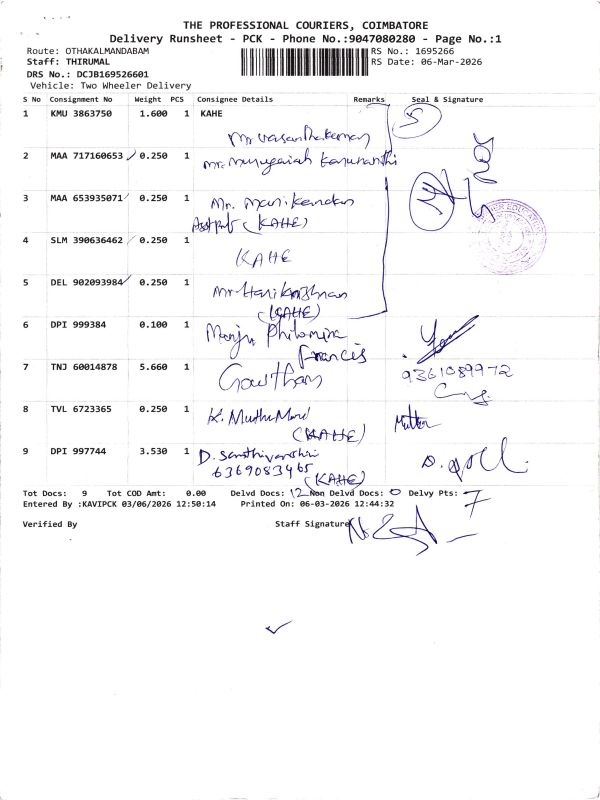 THE PROFESSIONAL COURIERS, COIMBATORE
Delivery Runsheet - PCK - Phone No.:9047080280 - Page No.:1
Route: OTHAKALMANDABAM
RS No.: 1695266
Staff: THIRUMAL
RS Date: 06-Mar-2026
DRS No.: DCJB169526601
Vehicle: Two Wheeler Delivery
S No Consignment No Weight PCS Consignee Details Remarks Seal & Signature
1 KMU 3863750 1.600 1 KAHE
5
2 MAA 717160653 0.250 1
3 MAA 653935071 0.250 1 Mr. Manikandan
(KAHE)
4 SLM 390636462 0.250 1
KAHE
5 DEL 902093984 0.250 1 Mr. Harikrishnan
(KAHE)
6 DPI 999384 0.100 1 Manju Philomina
Francis
7 TNJ 60014878 5.660 1 Gowtham
9361089972
8 TVL 6723365 0.250 1 K. Muthu
(KAHE)
9 DPI 997744 3.530 1 D.
6369083465
(KAHE)
Tot Docs: 9 Tot COD Amt: 0.00 Delvd Docs: 12 Non Delvd Docs: 0 Delvy Pts: 7
Entered By :KAVIPCK 03/06/2026 12:50:14 Printed On: 06-03-2026 12:44:32
Verified By Staff Signature